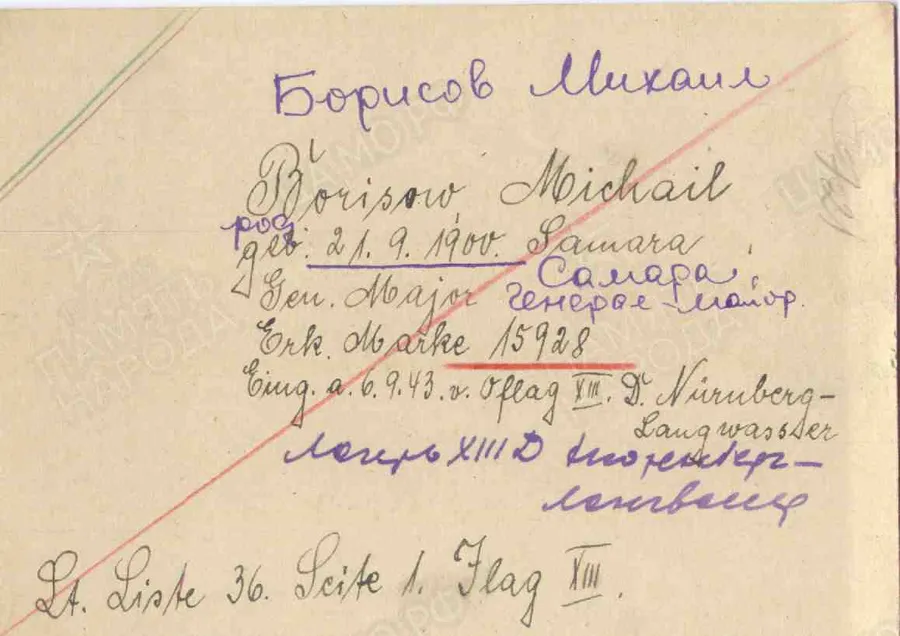 Борисов Михаил
Borisow Michail
род
geb. 21.9.1900. Samara
Самара
Gen. Major генерал-майор.
Erk. Marke 15928
Eing. a. 6.9.43. v. Oflag XIII. D. Nürnberg-
Langwasser
Лагерь XIII D Нюренберг-
Лангвассер
Lt. Liste 36. Seite 1. Ilag XIII.
ПАМЯТЬ
НАРОДА